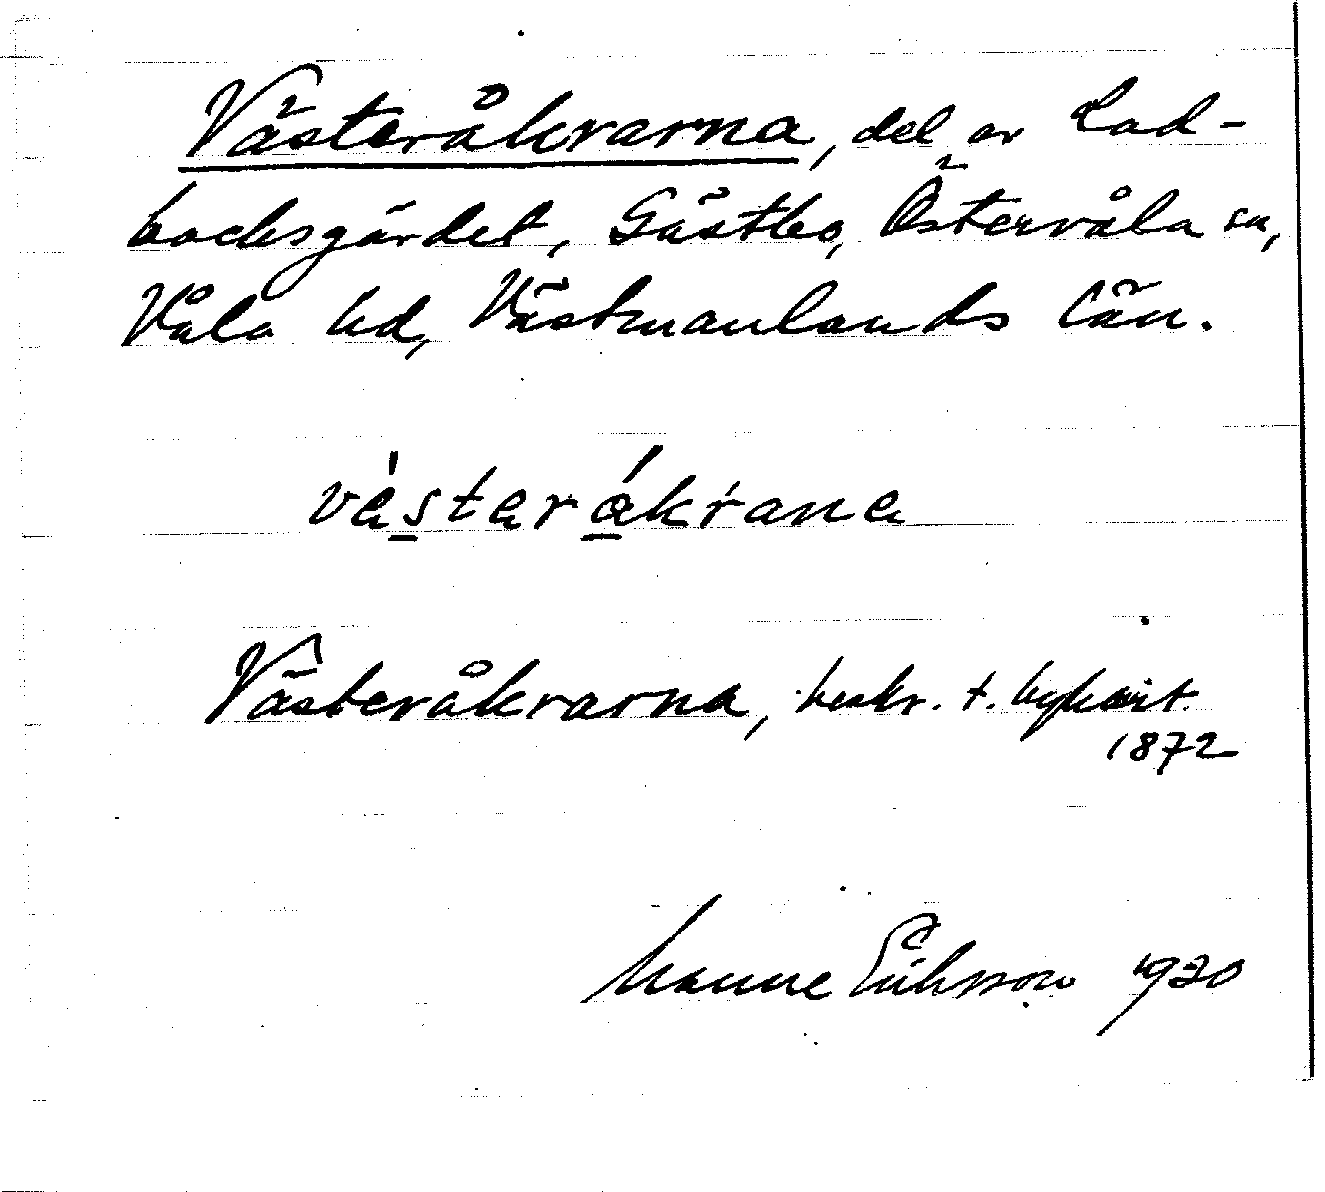 Västeråkrarna, del av Lad-
backsgärdet, Gästbo, Östervåla sn,
Våla hd, Västmanlands län.
västeråkrana
Västeråkrarna, beskr. t. bykart.
1872
Manne Eriksson 1930